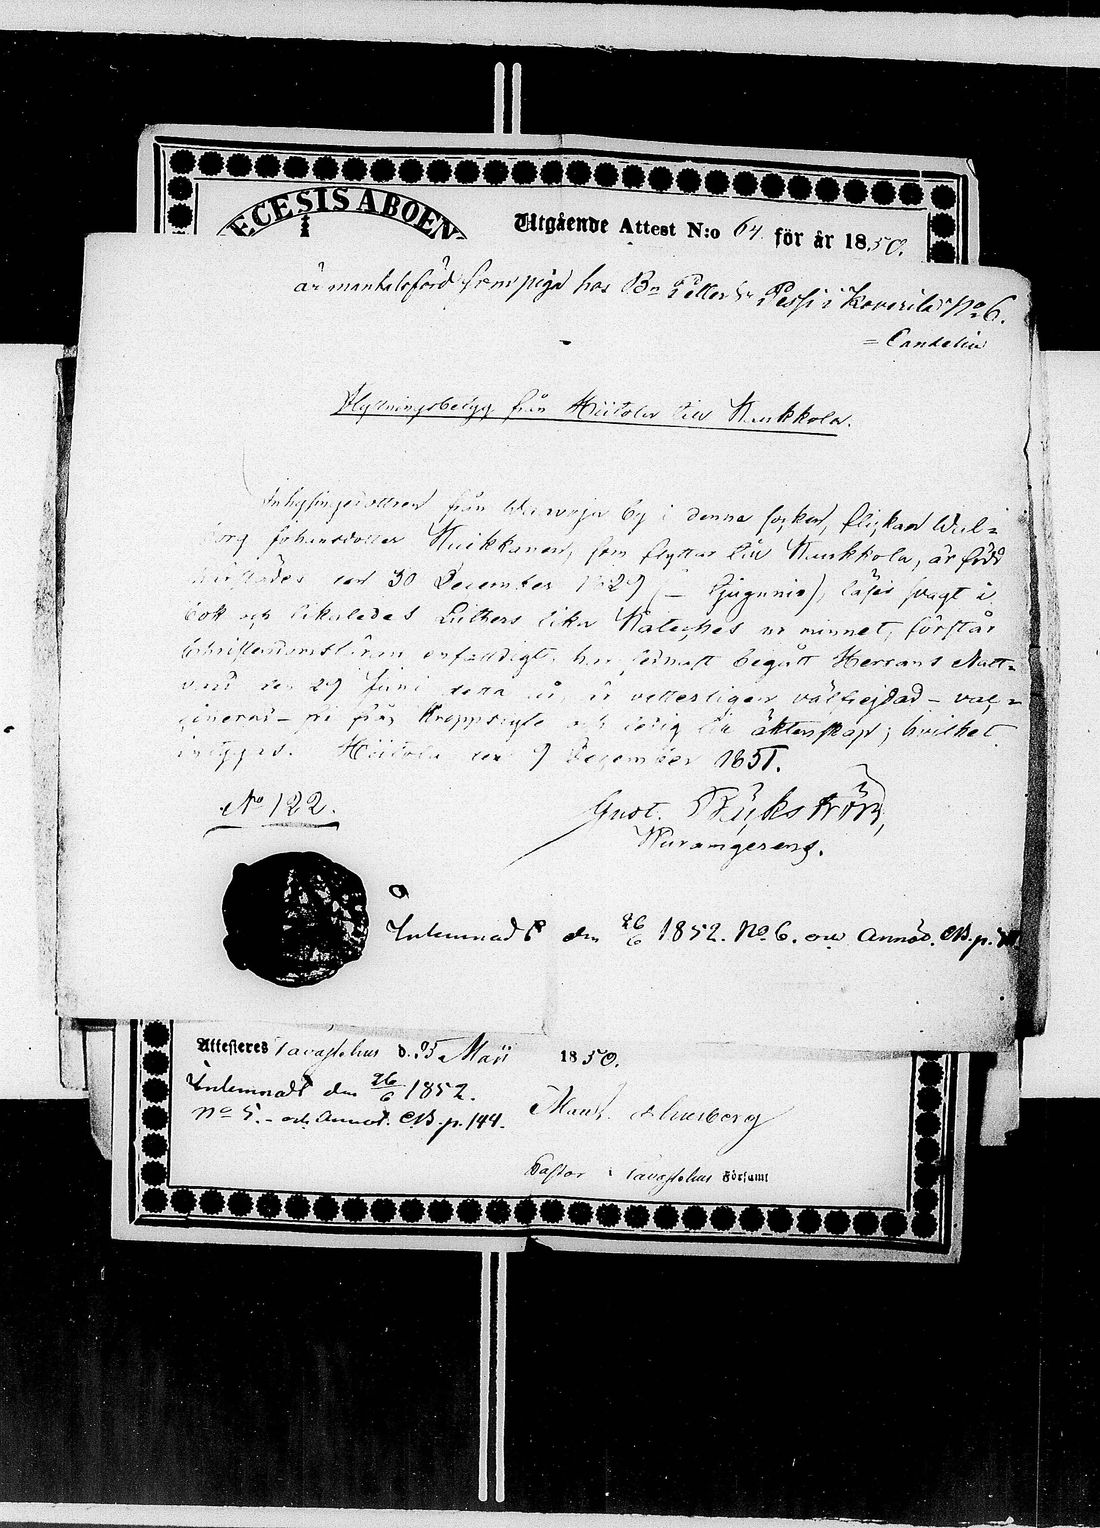 ECESIS ABOEN
Utgående Attest N:o 64. för år 1850.
är mantalsförd som piga hos Bn Petter Pessi i Koverila No 6.
= Candelin
Flyttningsbetyg från Hiitola till Kaukkola.
Inhysingedottren från by i denna socken, flickan Wal=
borg Johansdotter Kuikkanen, som flyttar till Kaukkola, är född
den 30 December 1829 (= tjugunio), läser svagt i
bok och likaledes Luthers lilla Kateches ur minnet, förstår
Christendomsläran enfaldigt, har sednast begått Herrans Natt=
vard den 29 Juni detta år, är vetterligen välfrejdad – vac=
cinerad – fri från Kroppslyte och ledig till äktenskap; hvilket
intygas. Hiitola den 9 December 1851.
No 122.
Gust.
Inlemnadt den 26/6 1852. No 6. och Annot. CB. p.
Attesteres Tavastehus d. 25 Maii 1850.
Inlemnadt den 26/6 1852.
No 5. – och Annot. CB. p. 144.
Pastor i Tavastehus Församl